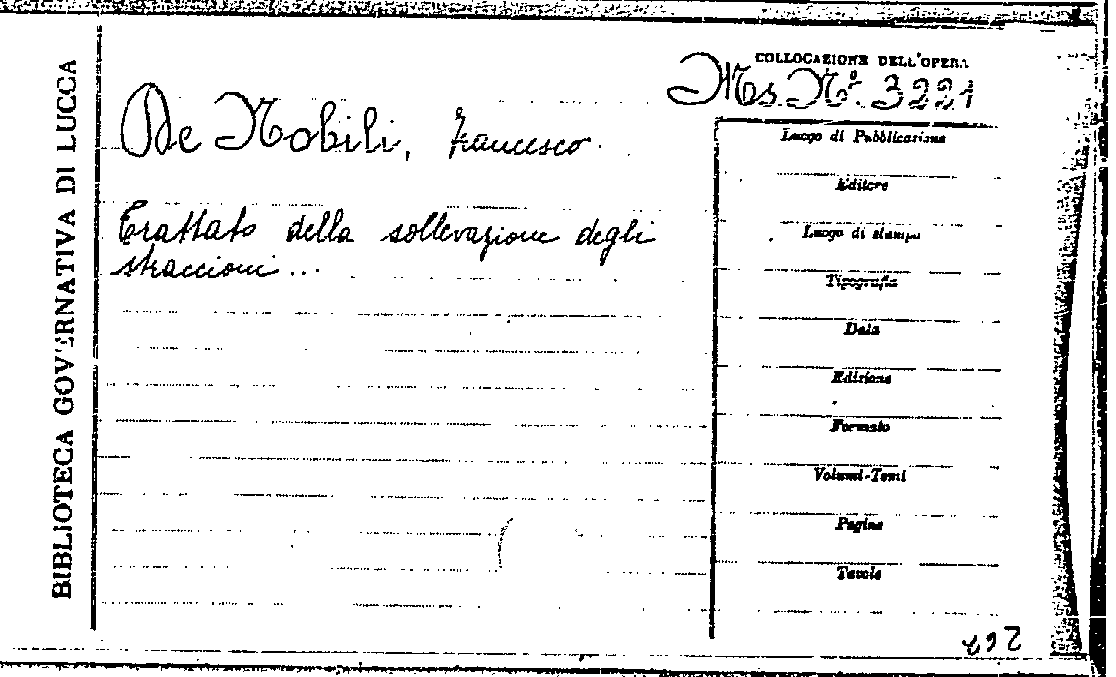 BIBLIOTECA GOVERNATIVA DI LUCCA
COLLOCAZIONE DELL'OPERA
Ms. N.º 3221
De Nobili, Francesco
Trattato della sollevazione degli
straccioni...
Luogo di Pubblicazione
Editore
Luogo di stampa
Tipografia
Data
Edizione
Formato
Volumi-Tomi
Pagine
Tavole